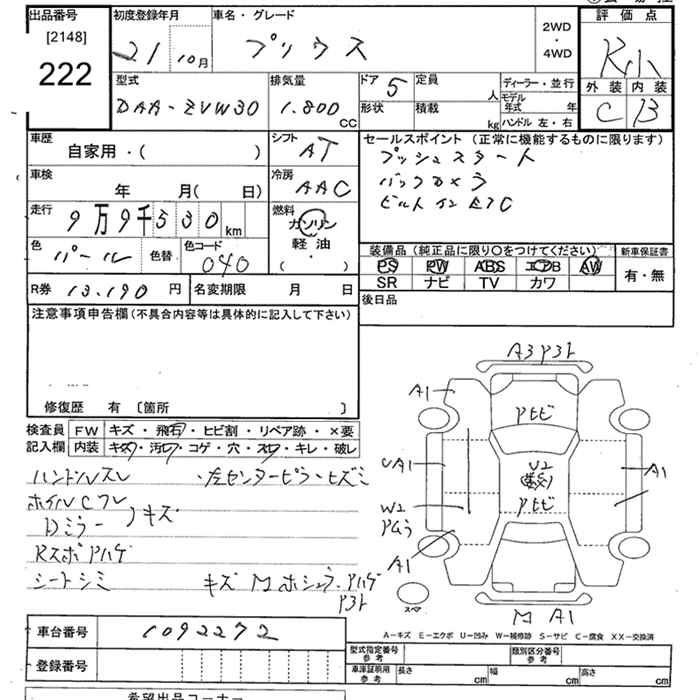 出品番号
[2148]
222
初度登録年月
21 10月
車名・グレード
プリウス
2WD
・
4WD
評価点
R小
外装 内装
C B
型式
DAA-ZVW30
排気量
1.800
CC
ドア 5
形状
定員 人
積載 kg
ディーラー・並行
モデル年式 年
ハンドル 左・右
車歴
自家用・( )
シフト
AT
セールスポイント(正常に機能するものに限ります)
プッシュスタート
バックカメラ
ビルトインETC
車検
年 月( 日)
冷房
AAC
走行
9万9千530km
燃料
ガソリン
軽油
・
( )
色
パール
色替
色コード
040
装備品(純正品に限り○をつけてください)
PS PW ABS エアB AW
SR ナビ TV カワ
新車保証書
有・無
R券 13.190 円
名変期限 月 日
後日品
注意事項申告欄(不具合内容等は具体的に記入して下さい)
修復歴 有 〔箇所 〕
検査員
記入欄
FW キズ・飛石・ヒビ割・リペア跡・×要
内装 キズ・汚レ・コゲ・穴・スレ・キレ・破レ
ハンドルスレ
・左センターピラーヒズミ
ホイルCフレ
Dミラー
キズ
RスポPハゲ
シートシミ
キズ Mホシュウ・Pハゲ
P3ト
A3P3ト
A1
Pヒビ
UA1
U2
A1
W2
Pムラ
Pヒビ
A1
スペア
M A1
A-キズ E-エクボ U-凹み W-補修跡 S-サビ C-腐食 XX-交換済
車台番号
1092272
登録番号
型式指定番号
参考
類別区分番号
参考
車庫証明用
参考
長さ cm
幅 cm
高さ cm
希望出品コーナー